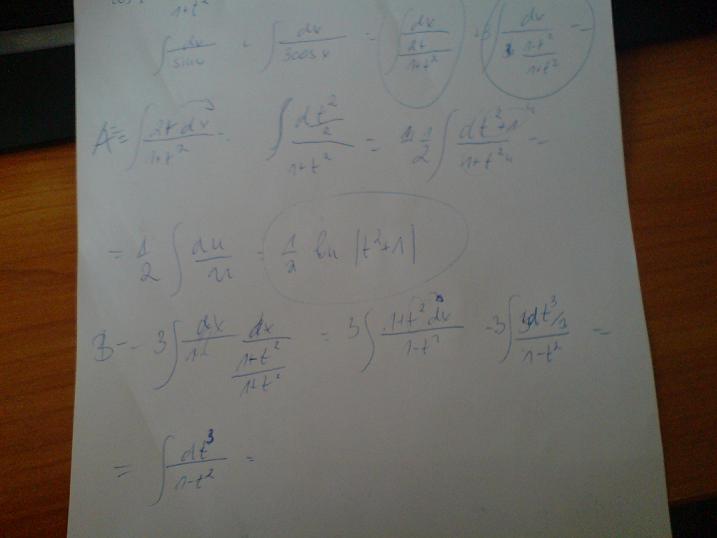 1+t²
∫ dx/sinx + ∫ dx/3cosx = ∫ dx/(2t/(1+t²)) + 3∫ dx/((1-t²)/(1+t²)) =
A = ∫ 2t dx/(1+t²) = ∫ (dt²/2)/(1+t²) = 1/2 ∫ dt²+1/(1+t²) =
= 1/2 ∫ du/u = 1/2 ln |t²+1|
B = 3∫ dx/((1+t²)/(1+t²)) = 3∫ 1+t² dx/(1-t²) = 3∫ (dt³/3)/(1-t²) =
= ∫ dt³/(1-t²) =